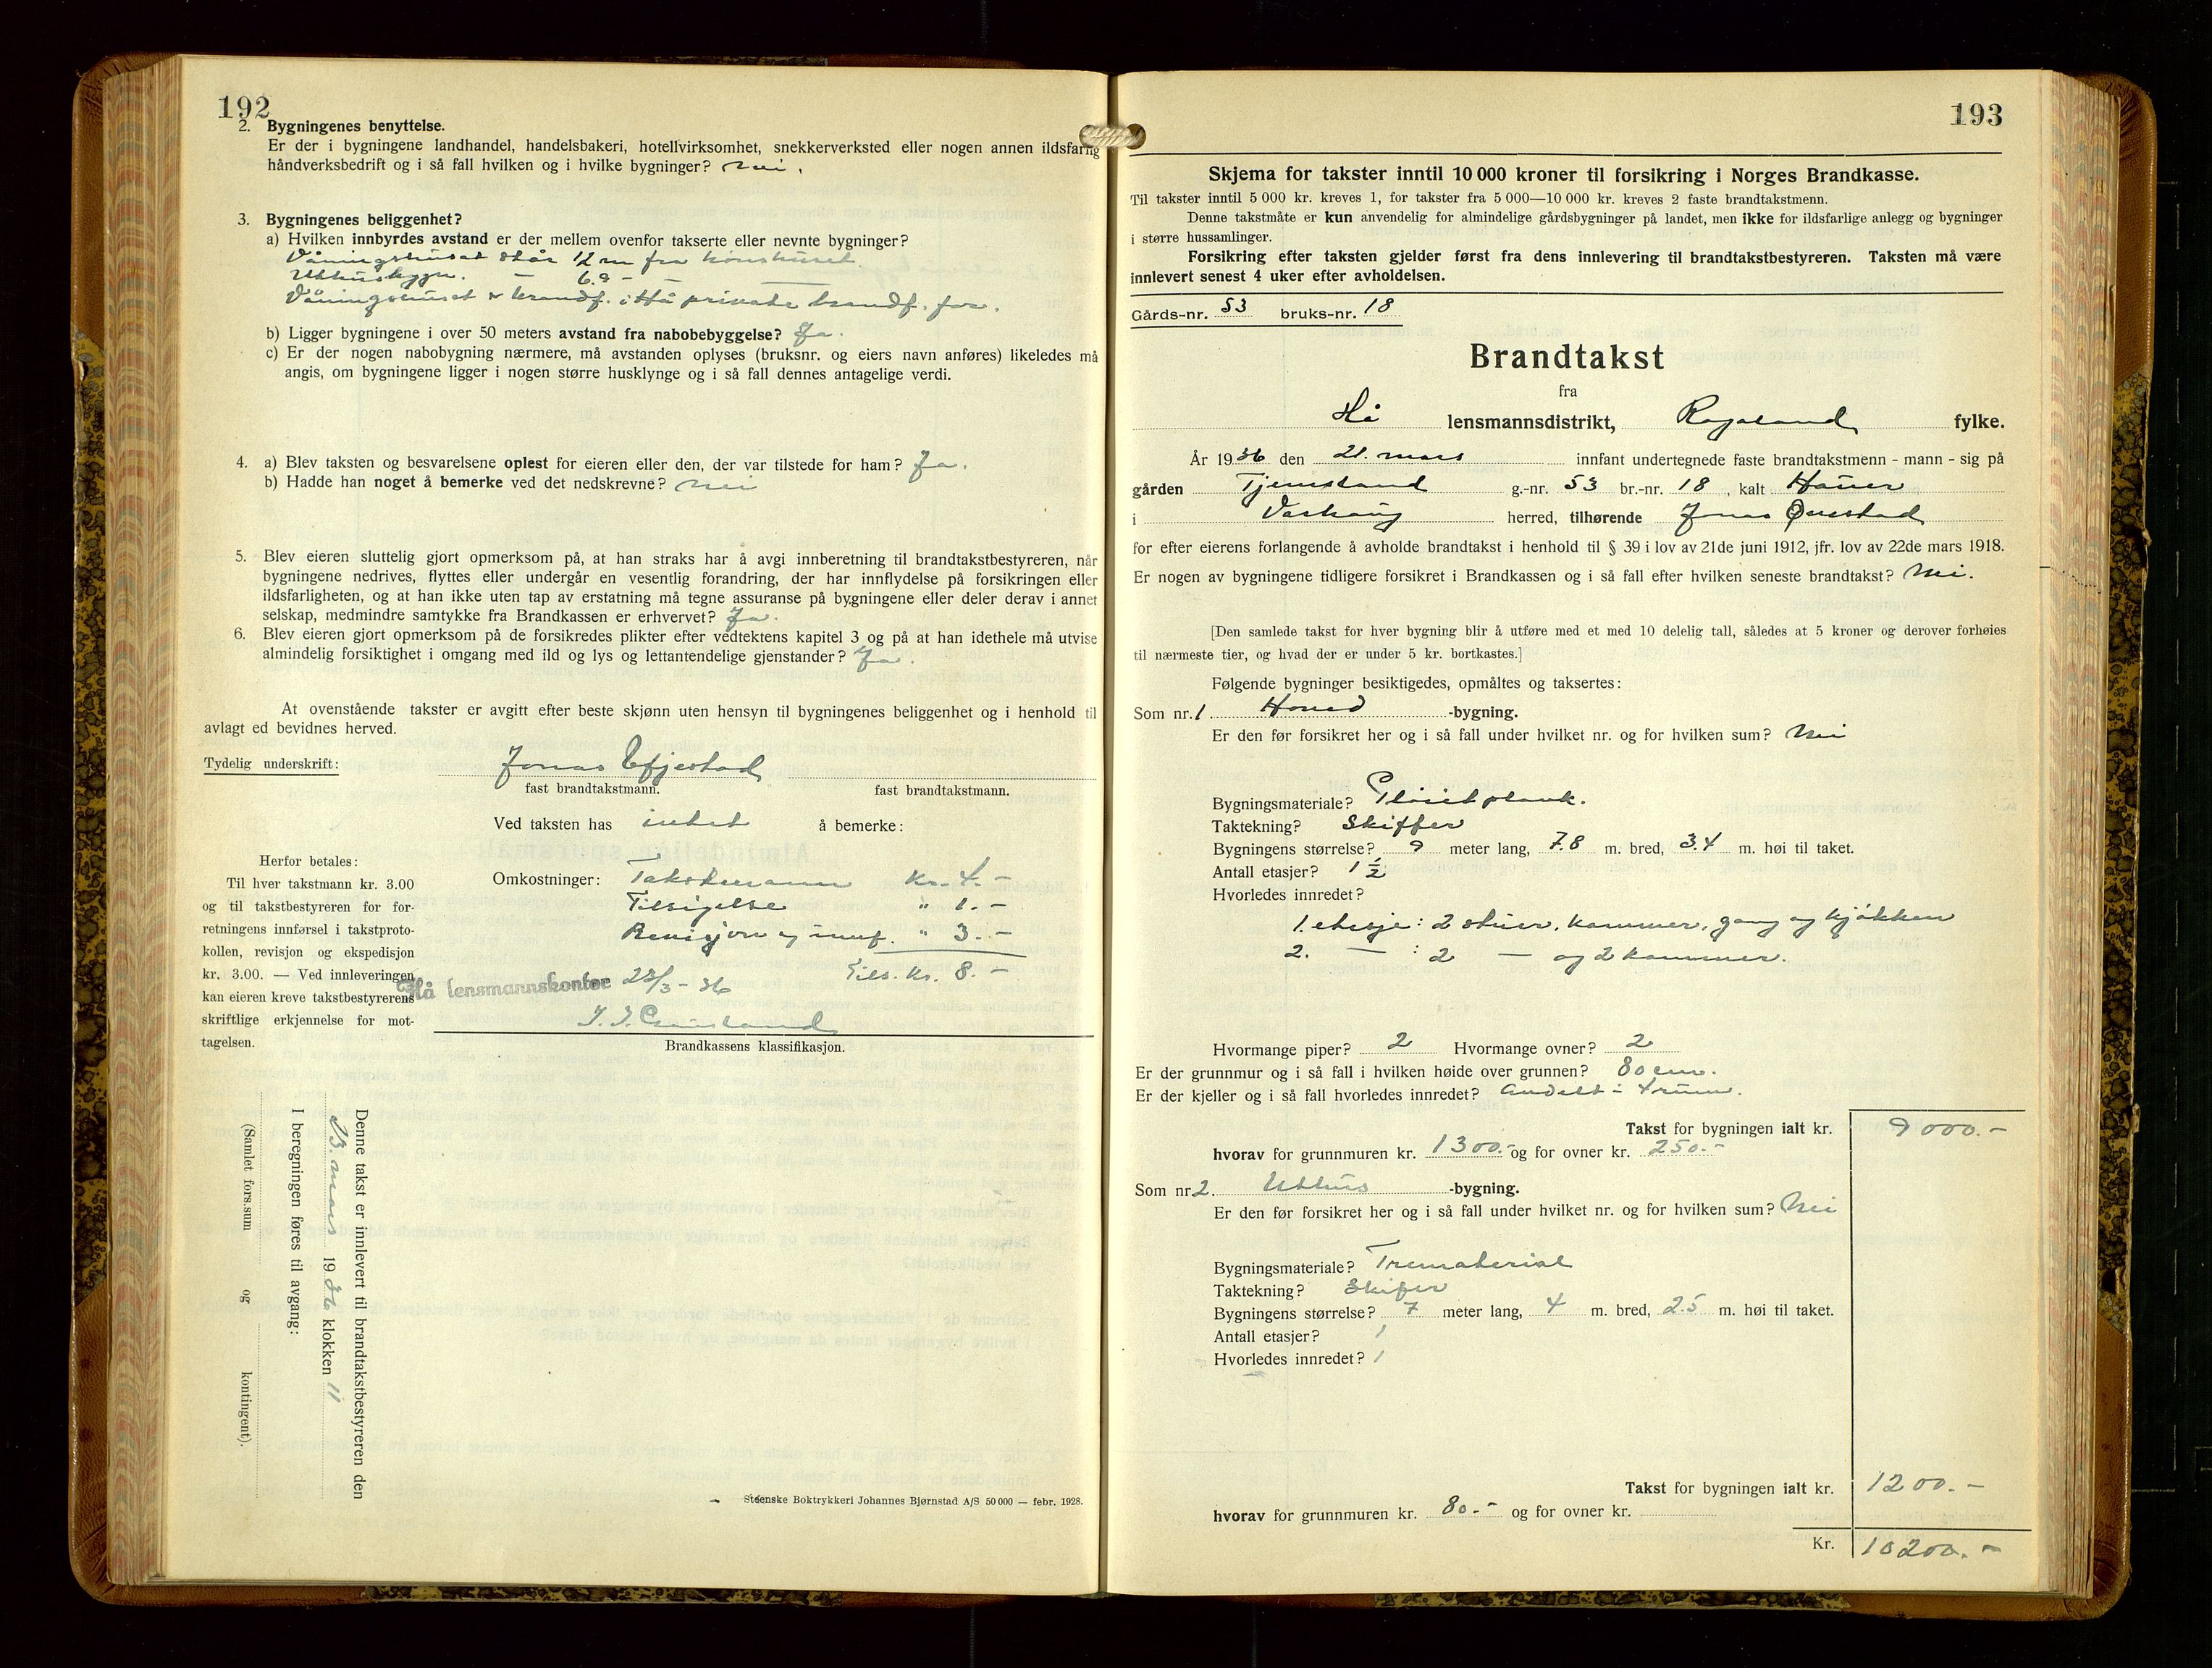 192
2. Bygningenes benyttelse.
Er der i bygningene landhandel, handelsbakeri, hotellvirksomhet, snekkerverksted eller nogen annen ildsfarlig
håndverksbedrift og i så fall hvilken og i hvilke bygninger? Nei.
3. Bygningenes beliggenhet?
a) Hvilken innbyrdes avstand er der mellem ovenfor takserte eller nevnte bygninger?
Våningshuset står 12 m fra hønshuset.
Uthusbygn. — 6.9 — —
Våningshuset er brandf. i Hå private brandf. for.
b) Ligger bygningene i over 50 meters avstand fra nabobebyggelse? Ja.
c) Er der nogen nabobygning nærmere, må avstanden oplyses (bruksnr. og eiers navn anføres) likeledes må
angis, om bygningene ligger i nogen større husklynge og i så fall dennes antagelige verdi.
4. a) Blev taksten og besvarelsene oplest for eieren eller den, der var tilstede for ham? Ja.
b) Hadde han noget å bemerke ved det nedskrevne? Nei
5. Blev eieren sluttelig gjort opmerksom på, at han straks har å avgi innberetning til brandtakstbestyreren, når
bygningene nedrives, flyttes eller undergår en vesentlig forandring, der har innflydelse på forsikringen eller
ildsfarligheten, og at han ikke uten tap av erstatning må tegne assuranse på bygningene eller deler derav i annet
selskap, medmindre samtykke fra Brandkassen er erhvervet? Ja.
6. Blev eieren gjort opmerksom på de forsikredes plikter efter vedtektens kapitel 3 og på at han idethele må utvise
almindelig forsiktighet i omgang med ild og lys og lettantendelige gjenstander? Ja.
At ovenstående takster er avgitt efter beste skjønn uten hensyn til bygningenes beliggenhet og i henhold til
avlagt ed bevidnes herved.
Tydelig underskrift: Jonas Efjestad
fast brandtakstmann. fast brandtakstmann.
Ved taksten has intet å bemerke:
Herfor betales:
Til hver takstmann kr. 3.00
og til takstbestyreren for for-
retningens innførsel i takstproto-
kollen, revisjon og ekspedisjon
kr. 3.00. — Ved innleveringen
kan eieren kreve takstbestyrerens
skriftlige erkjennelse for mot-
tagelsen.
Omkostninger: Takstmann Kr. 4.-
Tilsigelse " 1.-
Revisjon og innf. " 3.-
Tils. Kr. 8.-
Hå lensmannskontor 23/3 - 36
Brandkassens klassifikasjon.
Denne takst er innlevert til brandtakstbestyreren den
23. mars 1936 klokken 11
I beregningen føres til avgang:
(Samlet fors.sum og kontingent).
Steenske Boktrykkeri Johannes Bjørnstad A/S 50 000 — febr. 1928.
193
Skjema for takster inntil 10 000 kroner til forsikring i Norges Brandkasse.
Til takster inntil 5 000 kr. kreves 1, for takster fra 5 000—10 000 kr. kreves 2 faste brandtakstmenn.
Denne takstmåte er kun anvendelig for almindelige gårdsbygninger på landet, men ikke for ildsfarlige anlegg og bygninger
i større hussamlinger.
Forsikring efter taksten gjelder først fra dens innlevering til brandtakstbestyreren. Taksten må være
innlevert senest 4 uker efter avholdelsen.
Gårds-nr. 53 bruks-nr. 18
Brandtakst
fra
Hå lensmannsdistrikt, Rogaland fylke.
År 1936 den 21. mars innfant undertegnede faste brandtakstmenn - mann - sig på
gården Tjemsland g.-nr. 53 br.-nr. 18, kalt
i Varhaug herred, tilhørende Jonas
for efter eierens forlangende å avholde brandtakst i henhold til § 39 i lov av 21de juni 1912, jfr. lov av 22de mars 1918.
Er nogen av bygningene tidligere forsikret i Brandkassen og i så fall efter hvilken seneste brandtakst? Nei.
[Den samlede takst for hver bygning blir å utføre med et med 10 delelig tall, således at 5 kroner og derover forhøies
til nærmeste tier, og hvad der er under 5 kr. bortkastes.]
Følgende bygninger besiktigedes, opmåltes og taksertes:
Som nr. 1 Hoved -bygning.
Er den før forsikret her og i så fall under hvilket nr. og for hvilken sum? Nei
Bygningsmateriale? Pløietplank.
Taktekning? Skiffer
Bygningens størrelse? 9 meter lang, 7.8 m. bred, 3.4 m. høi til taket.
Antall etasjer? 1 1/2
Hvorledes innredet?
1. etasje: 2 stuer, kammer, gang og kjøkken
2. — : 2 — og 2 kammer.
Hvormange piper? 2 Hvormange ovner? 2
Er der grunnmur og i så fall i hvilken høide over grunnen? 80 cm.
Er der kjeller og i så fall hvorledes innredet? Andelt i 4 rum.
Takst for bygningen ialt kr. 9000.-
hvorav for grunnmuren kr. 1300.- og for ovner kr. 250.-
Som nr. 2. Uthus -bygning.
Er den før forsikret her og i så fall under hvilket nr. og for hvilken sum? Nei
Bygningsmateriale? Trematerial
Taktekning? Skifer
Bygningens størrelse? 7 meter lang, 4 m. bred, 2.5 m. høi til taket.
Antall etasjer? 1
Hvorledes innredet? 1
Takst for bygningen ialt kr. 1200.-
hvorav for grunnmuren kr. 80.- og for ovner kr.
Kr. 10200.-